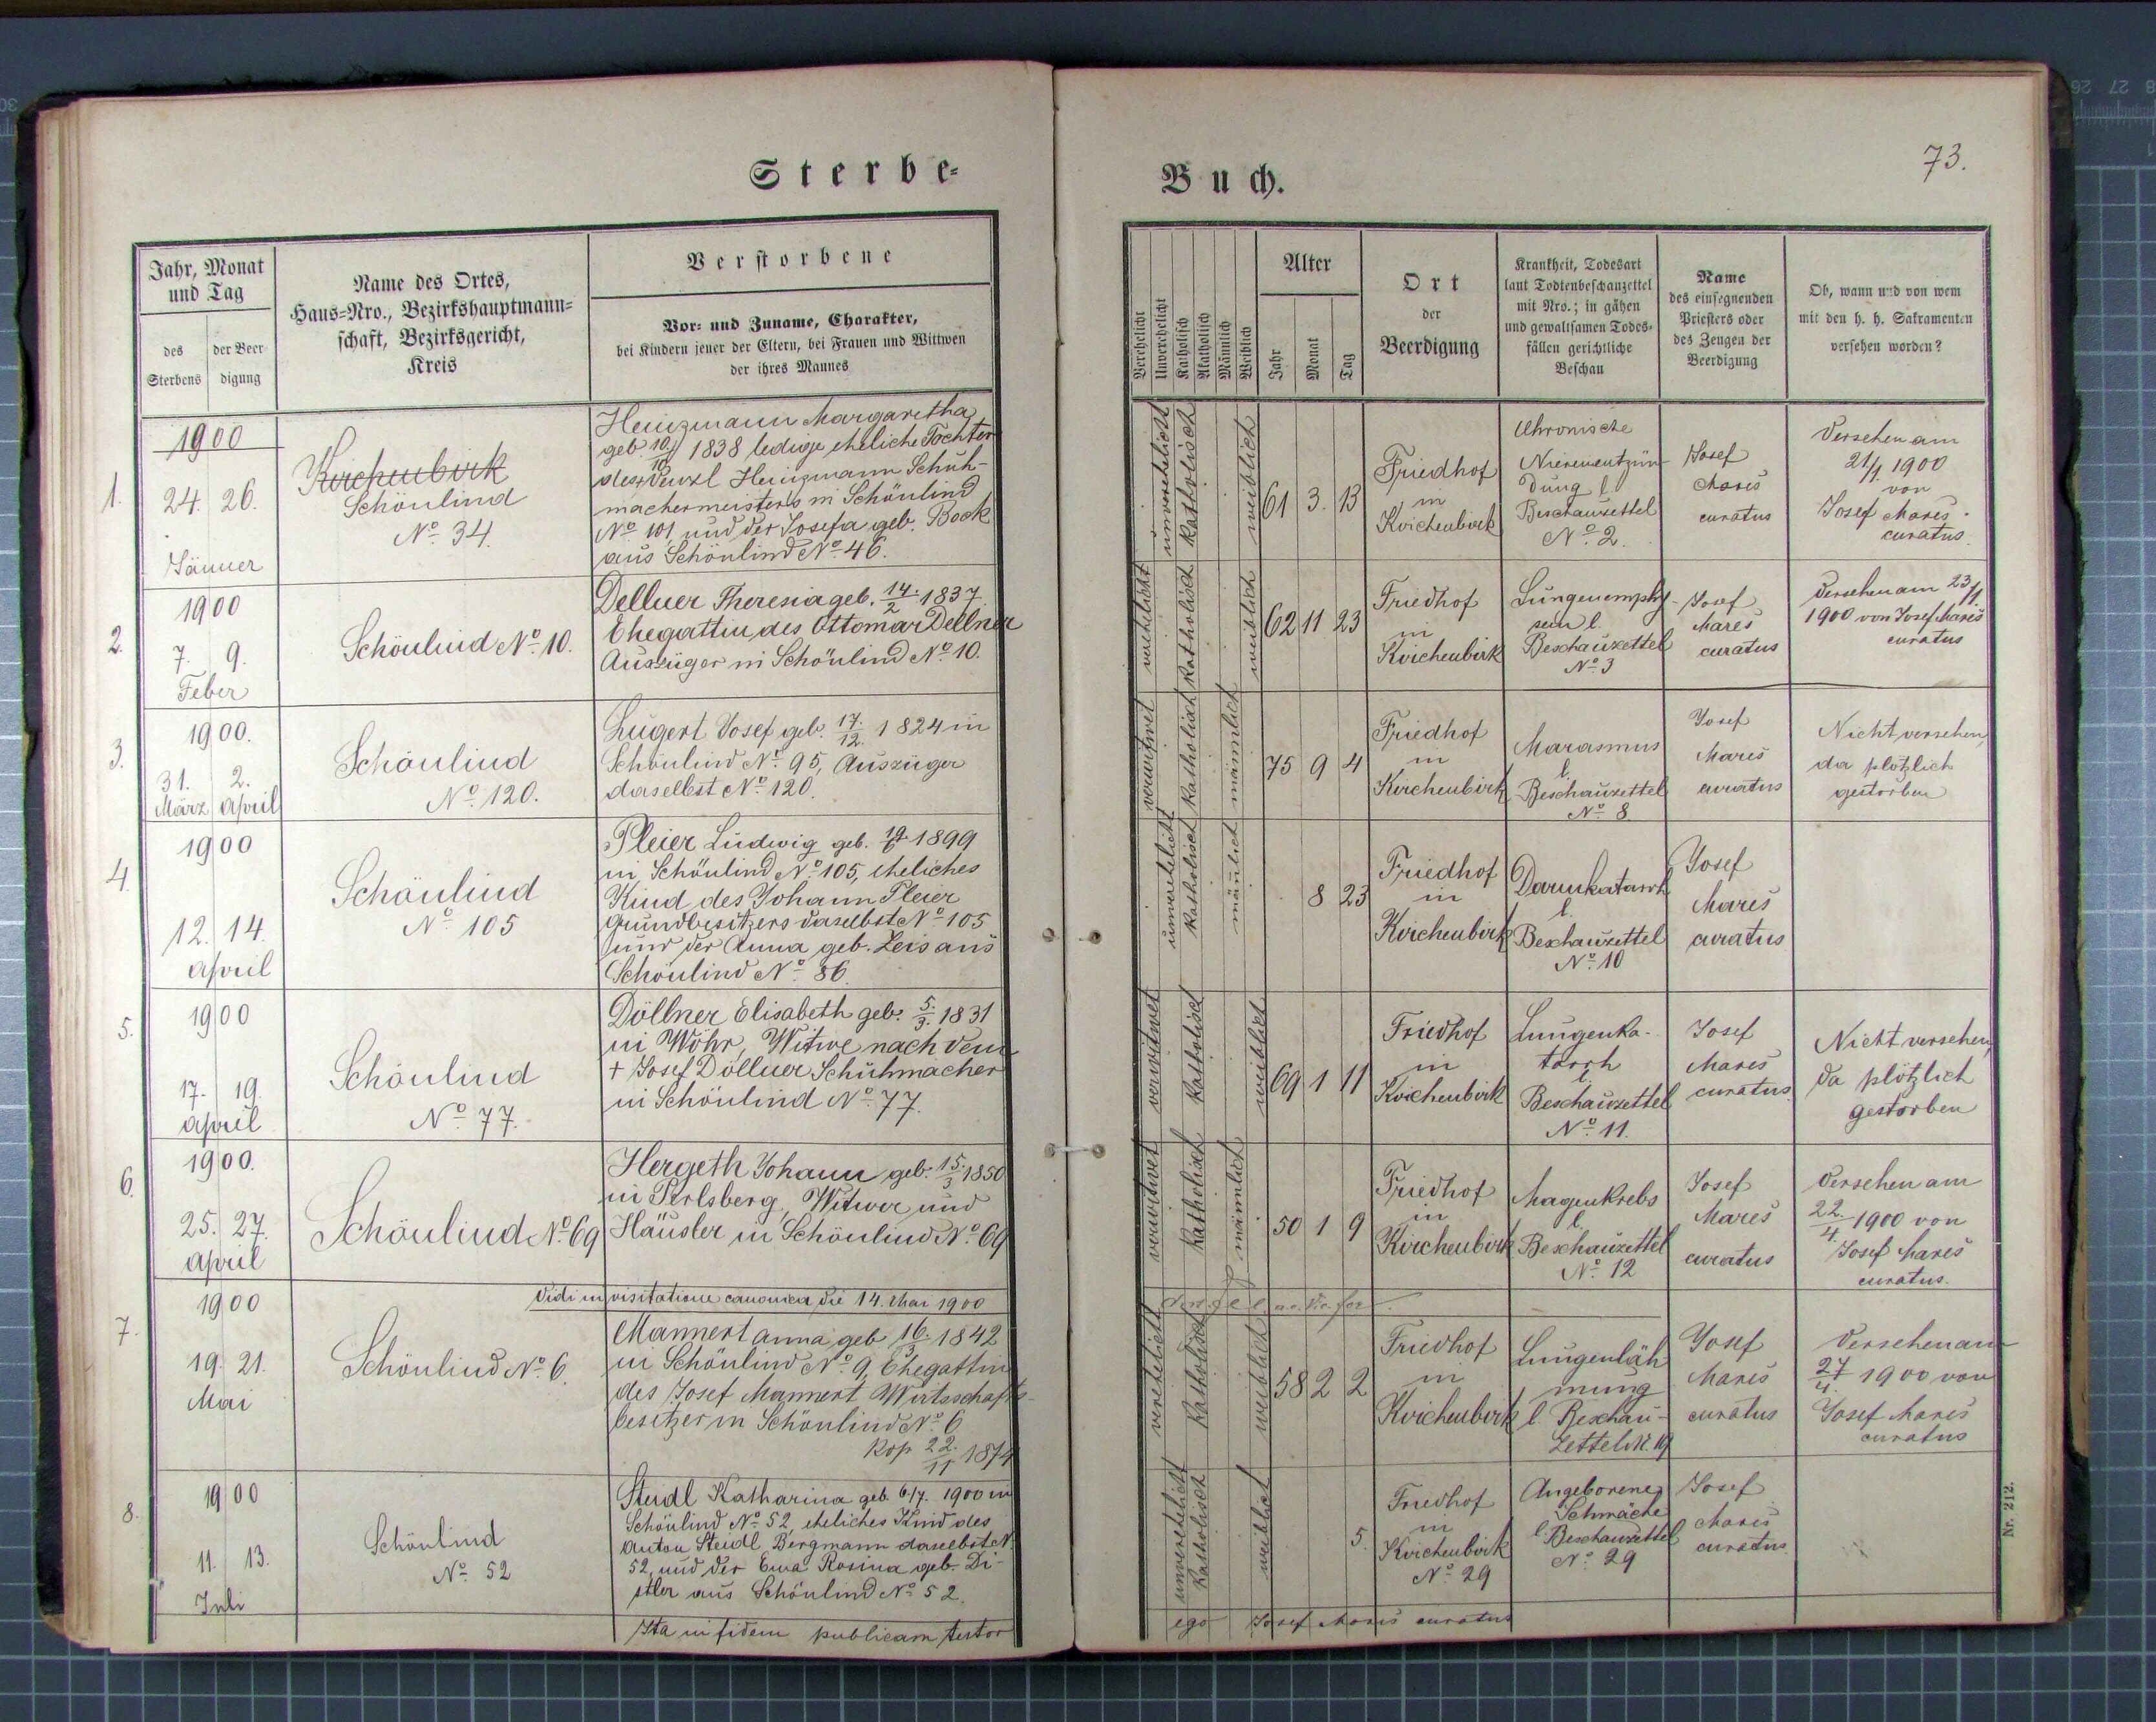 73.
Sterbe-
Buch.
Jahr, Monat
und Tag
des
Sterbens
der Beer
digung
Name des Ortes,
Haus-Nro., Bezirkshauptmann-
schaft, Bezirksgericht,
Kreis
Verstorbene
Vor- und Zuname, Charakter,
bei Kindern jener der Eltern, bei Frauen und Wittwen
der ihres Mannes
Verehelicht
Unverehelicht
Katholisch
Akatholisch
Männlich
Weiblich
Alter
Jahr
Monat
Tag
Ort
der
Beerdigung
Krankheit, Todesart
laut Todtenbeschauzettel
mit Nro.; in gähen
und gewaltsamen Todes-
fällen gerichtliche
Beschau
Name
des einsegnenden
Priesters oder
des Zeugen der
Beerdigung
Ob, wann und von wem
mit den h. h. Sakramenten
versehen worden?
1.
1900
24. 26.
Jänner
Kirchenbirk
Schönlind
No 34.
Heinzmann Margaretha
geb. 10/10 1838 ledige eheliche Tochter
des + Wenzl Heinzmann Schuh-
machermeisters in Schönlind
No 101 und der Josefa geb. Bock
aus Schönlind No 46.
unverehelicht
katholisch
weiblich
61 3. 13
Friedhof
in
Kirchenbirk
Chronische
Nierenentzün-
dung l.
Beschauzettel
No 2.
Josef
Mareš
curatus
Versehen am
21/1 1900
von
Josef Mareš
curatus.
2.
1900
7. 9.
Feber
Schönlind No 10.
Dellner Theresia geb. 14./2 1837
Ehegattin des Ottomar Dellner
Auszüger in Schönlind No 10.
verehelicht
katholisch
weiblich
62 11 23
Friedhof
in
Kirchenbirk
Lungenemphy-
sem l.
Beschauzettel
No 3
Josef
Mareš
curatus
Versehen am 23/1
1900 von Josef Mareš
curatus
3.
1900.
31. 2.
März April
Schönlind
No 120.
Lugert Josef geb. 17./12. 1824 in
Schönlind No 95, Auszüger
daselbst No 120.
verwitwet
katholisch
männlich
75 9 4
Friedhof
in
Kirchenbirk
Marasmus
l.
Beschauzettel
No 8
Josef
Mareš
curatus
Nicht versehen,
da plötzlich
gestorben
4.
1900
12. 14.
April
Schönlind
No 105
Pleier Ludwig geb. 1899
in Schönlind No 105, eheliches
Kind des Johann Pleier
Grundbesitzers daselbst No 105
und der Anna geb. Leis aus
Schönlind No 86.
unverehelicht
katholisch
mänlich
8 23
Friedhof
in
Kirchenbirk
Darmkatarrh
l.
Beschauzettel
No 10
Josef
Mareš
curatus
5.
1900
17. 19.
April
Schönlind
No 77.
Döllner Elisabeth geb. 5/3. 1831
in Wöhr, Witwe nach dem
+ Josef Döllner Schuhmacher
in Schönlind No 77.
verwitwet
katholisch
weiblich
69 1 11
Friedhof
in
Kirchenbirk
Lungenka-
tarrh
l.
Beschauzettel
No 11.
Josef
Mareš
curatus.
Nicht versehen,
da plötzlich
gestorben
6.
1900.
25. 27.
April
Schönlind No 69
Hergeth Johann geb. 15./3 1850
in Perlsberg, Witwer und
Häusler in Schönlind No 69
verwitwet
katholisch
männlich
50 1 9
Friedhof
in
Kirchenbirk
Magenkrebs
l.
Beschauzettel
No 12
Josef
Mareš
curatus
Versehen am
22./4. 1900 von
Josef Mareš
curatus.
Vidi in visitatione canonica die 14. Mai 1900
7.
1900
19. 21.
Mai
Schönlind No 6.
Mannert Anna geb. 16./3. 1842
in Schönlind No 9, Ehegattin
des Josef Mannert Wirtschafts-
besitzer in Schönlind No 6
Kop 22./11 1874
verehelicht
katholisch
weiblich
58 2 2
Friedhof
in
Kirchenbirk
Lungenläh
mung
l. Beschau-
zettel N. 19
Josef
Mareš
curatus
Versehen am
27/4. 1900 von
Josef Mareš
curatus
8.
1900
11. 13.
Juli
Schönlind
No 52
Steidl Katharina geb. 6/7. 1900 in
Schönlind No 52, eheliches Kind des
Anton Steidl, Bergmann daselbst N.
52, und der Ewa Rosina geb. Di-
stler aus Schönlind No 52.
unverehelicht
katholisch
weiblich
5.
Friedhof
in
Kirchenbirk
No 29
Angeborene
Schwäche
l. Beschauzettel
No 29
Josef
Mareš
curatus.
Ita in fidem publicam testor
ego Josef Mareš curatus
Nr. 212.